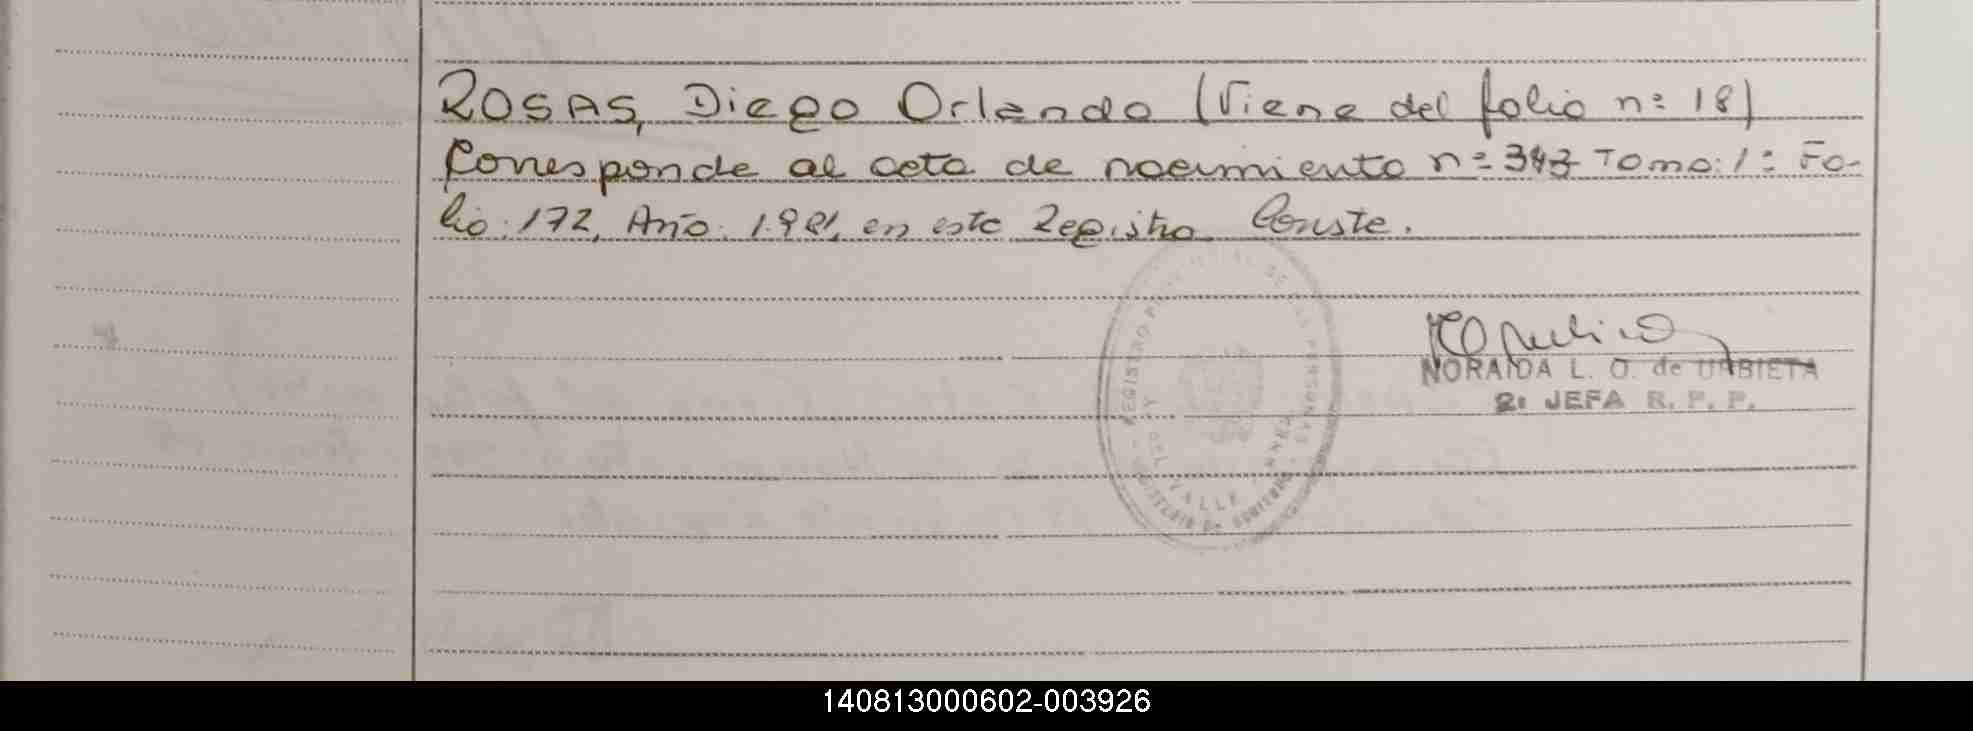 ROSAS, Diego Orlando (Viene del folio nº 18)
Corresponde al acta de nacimiento nº 343 Tomo: 1º Fo-
lio: 172, Año: 1.981, en este Registro. Conste.
NORAIDA L. O. de URBIETA
2ª JEFA R. P. P.
REGISTRO
DEL VALLE
140813000602-003926